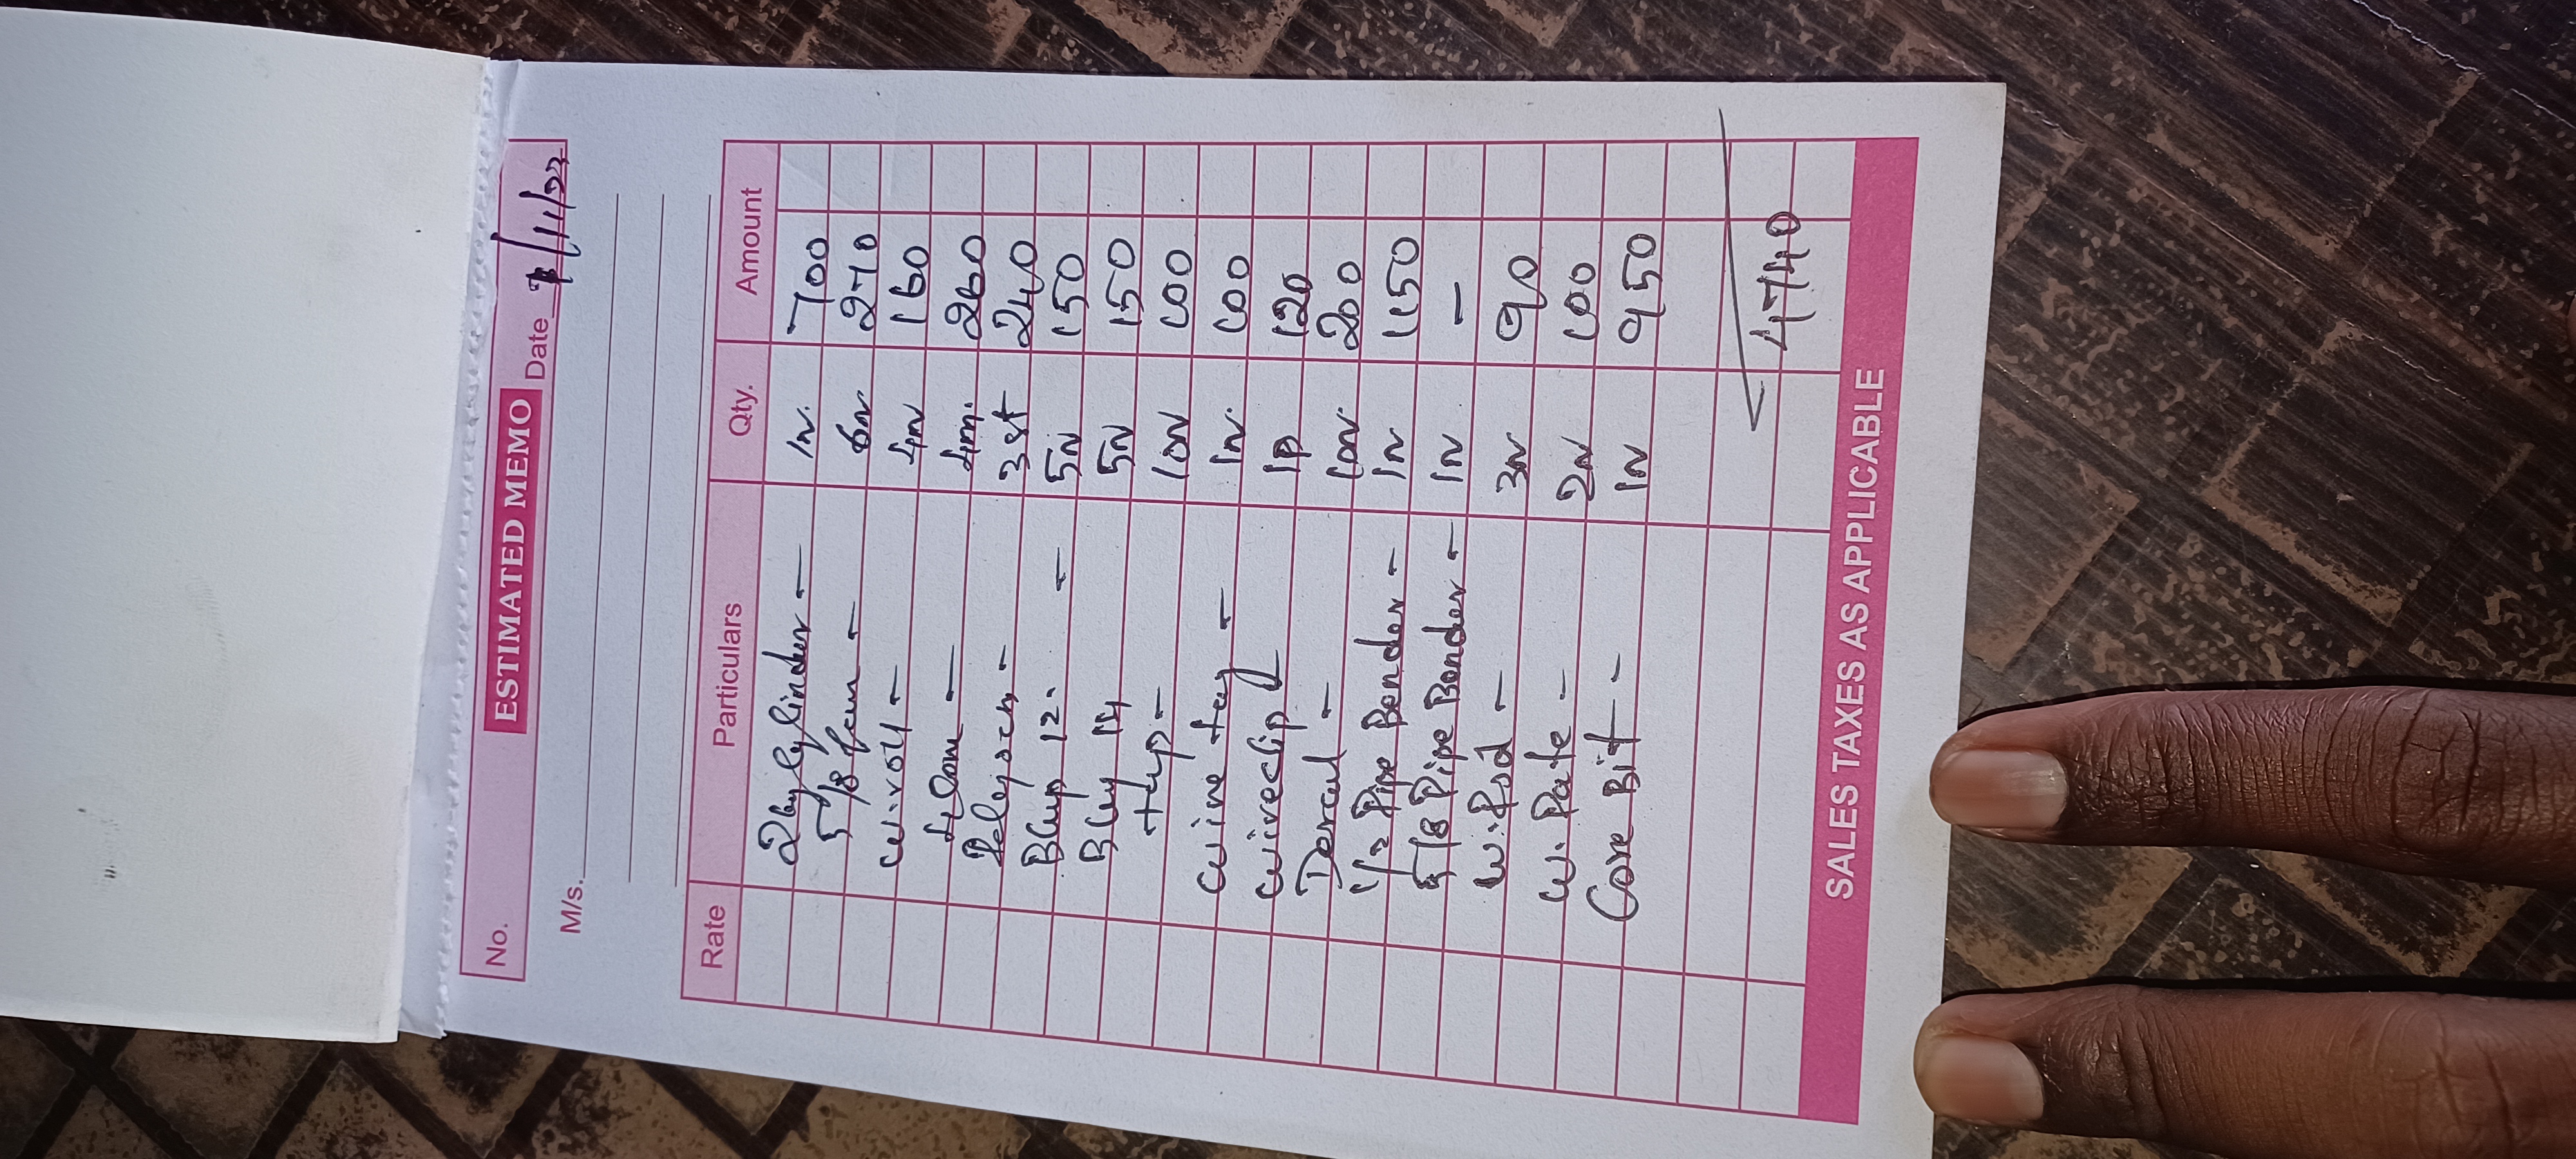 No. ESTIMATED MEMO Date /11/23
M/s.
Rate Particulars Qty. Amount
2kg Cylinder - 1N. 700
5/8 - 6N 270
W.roll - 4N 160
4 Core - 4m. 260
- 3 st 240
BCup 12 - 5N 150
5N 150
tap - 10N 100
Wire tag - 1N. 100
Wireclip - 1P 120
- 10N. 200
1/2 Pipe Bender - 1N 1150
5/8 Pipe Bender - 1N -
W.Rod - 3N 90
W. Pate - 2N 100
Core Bit - 1N 950
4740
SALES TAXES AS APPLICABLE